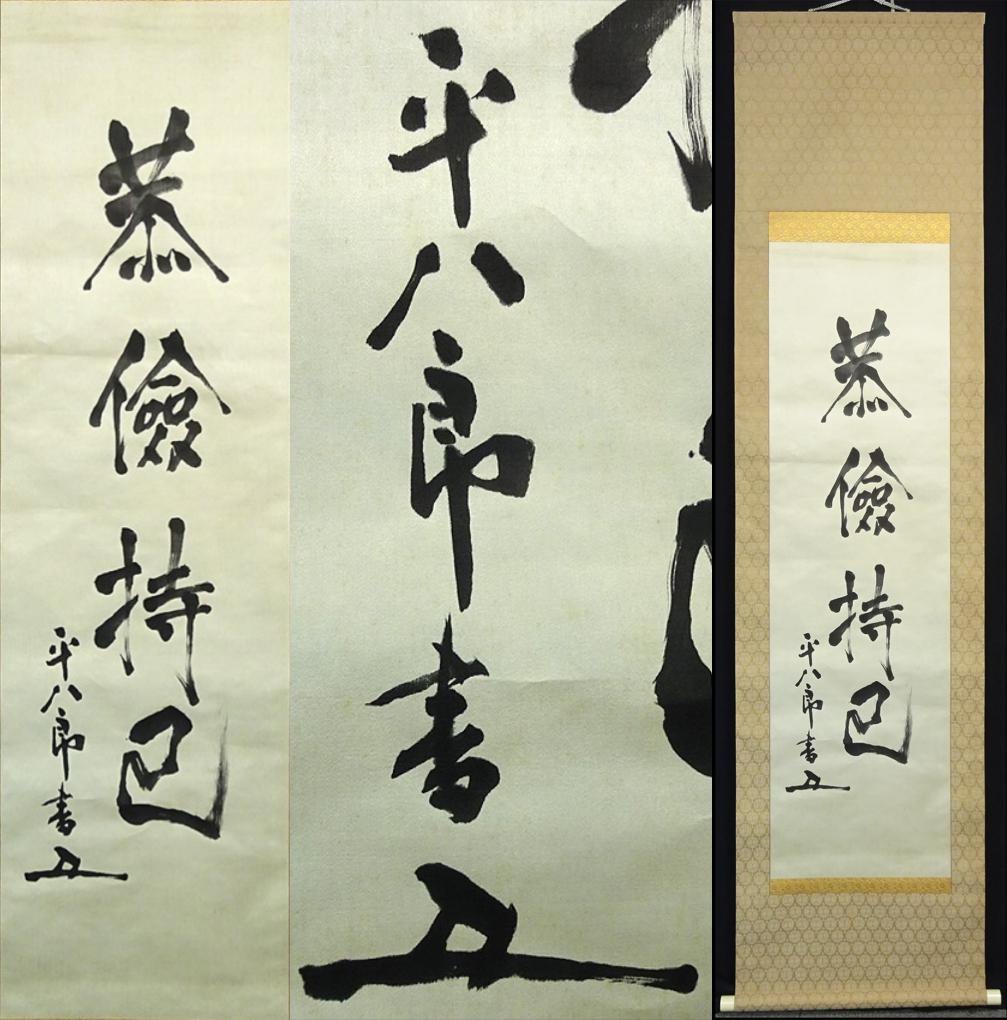 恭儉持己
平八郎書
平八郎書
恭儉持己
平八郎書